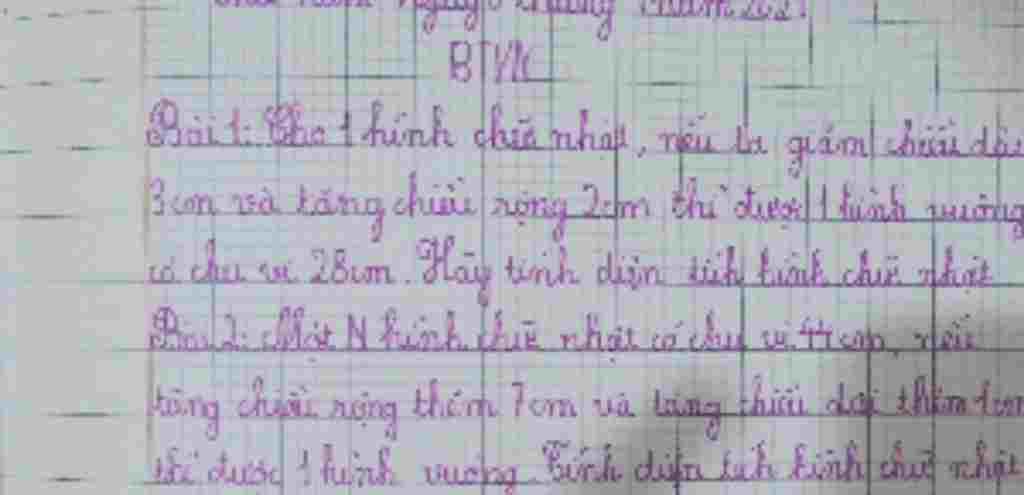 ngày 6 tháng 1 năm 202
BTVN
Bài 1: Cho 1 hình chữ nhật, nếu ta giảm chiều dài
3cm và tăng chiều rộng 2cm thì được 1 hình vuông
có chu vi 28cm. Hãy tính diện tích hình chữ nhật
Bài 2: Một N hình chữ nhật có chu vi 44cm, nếu
tăng chiều rộng thêm 7cm và tăng chiều dài thêm 1cm
thì được 1 hình vuông. Tính diện tích hình chữ nhật